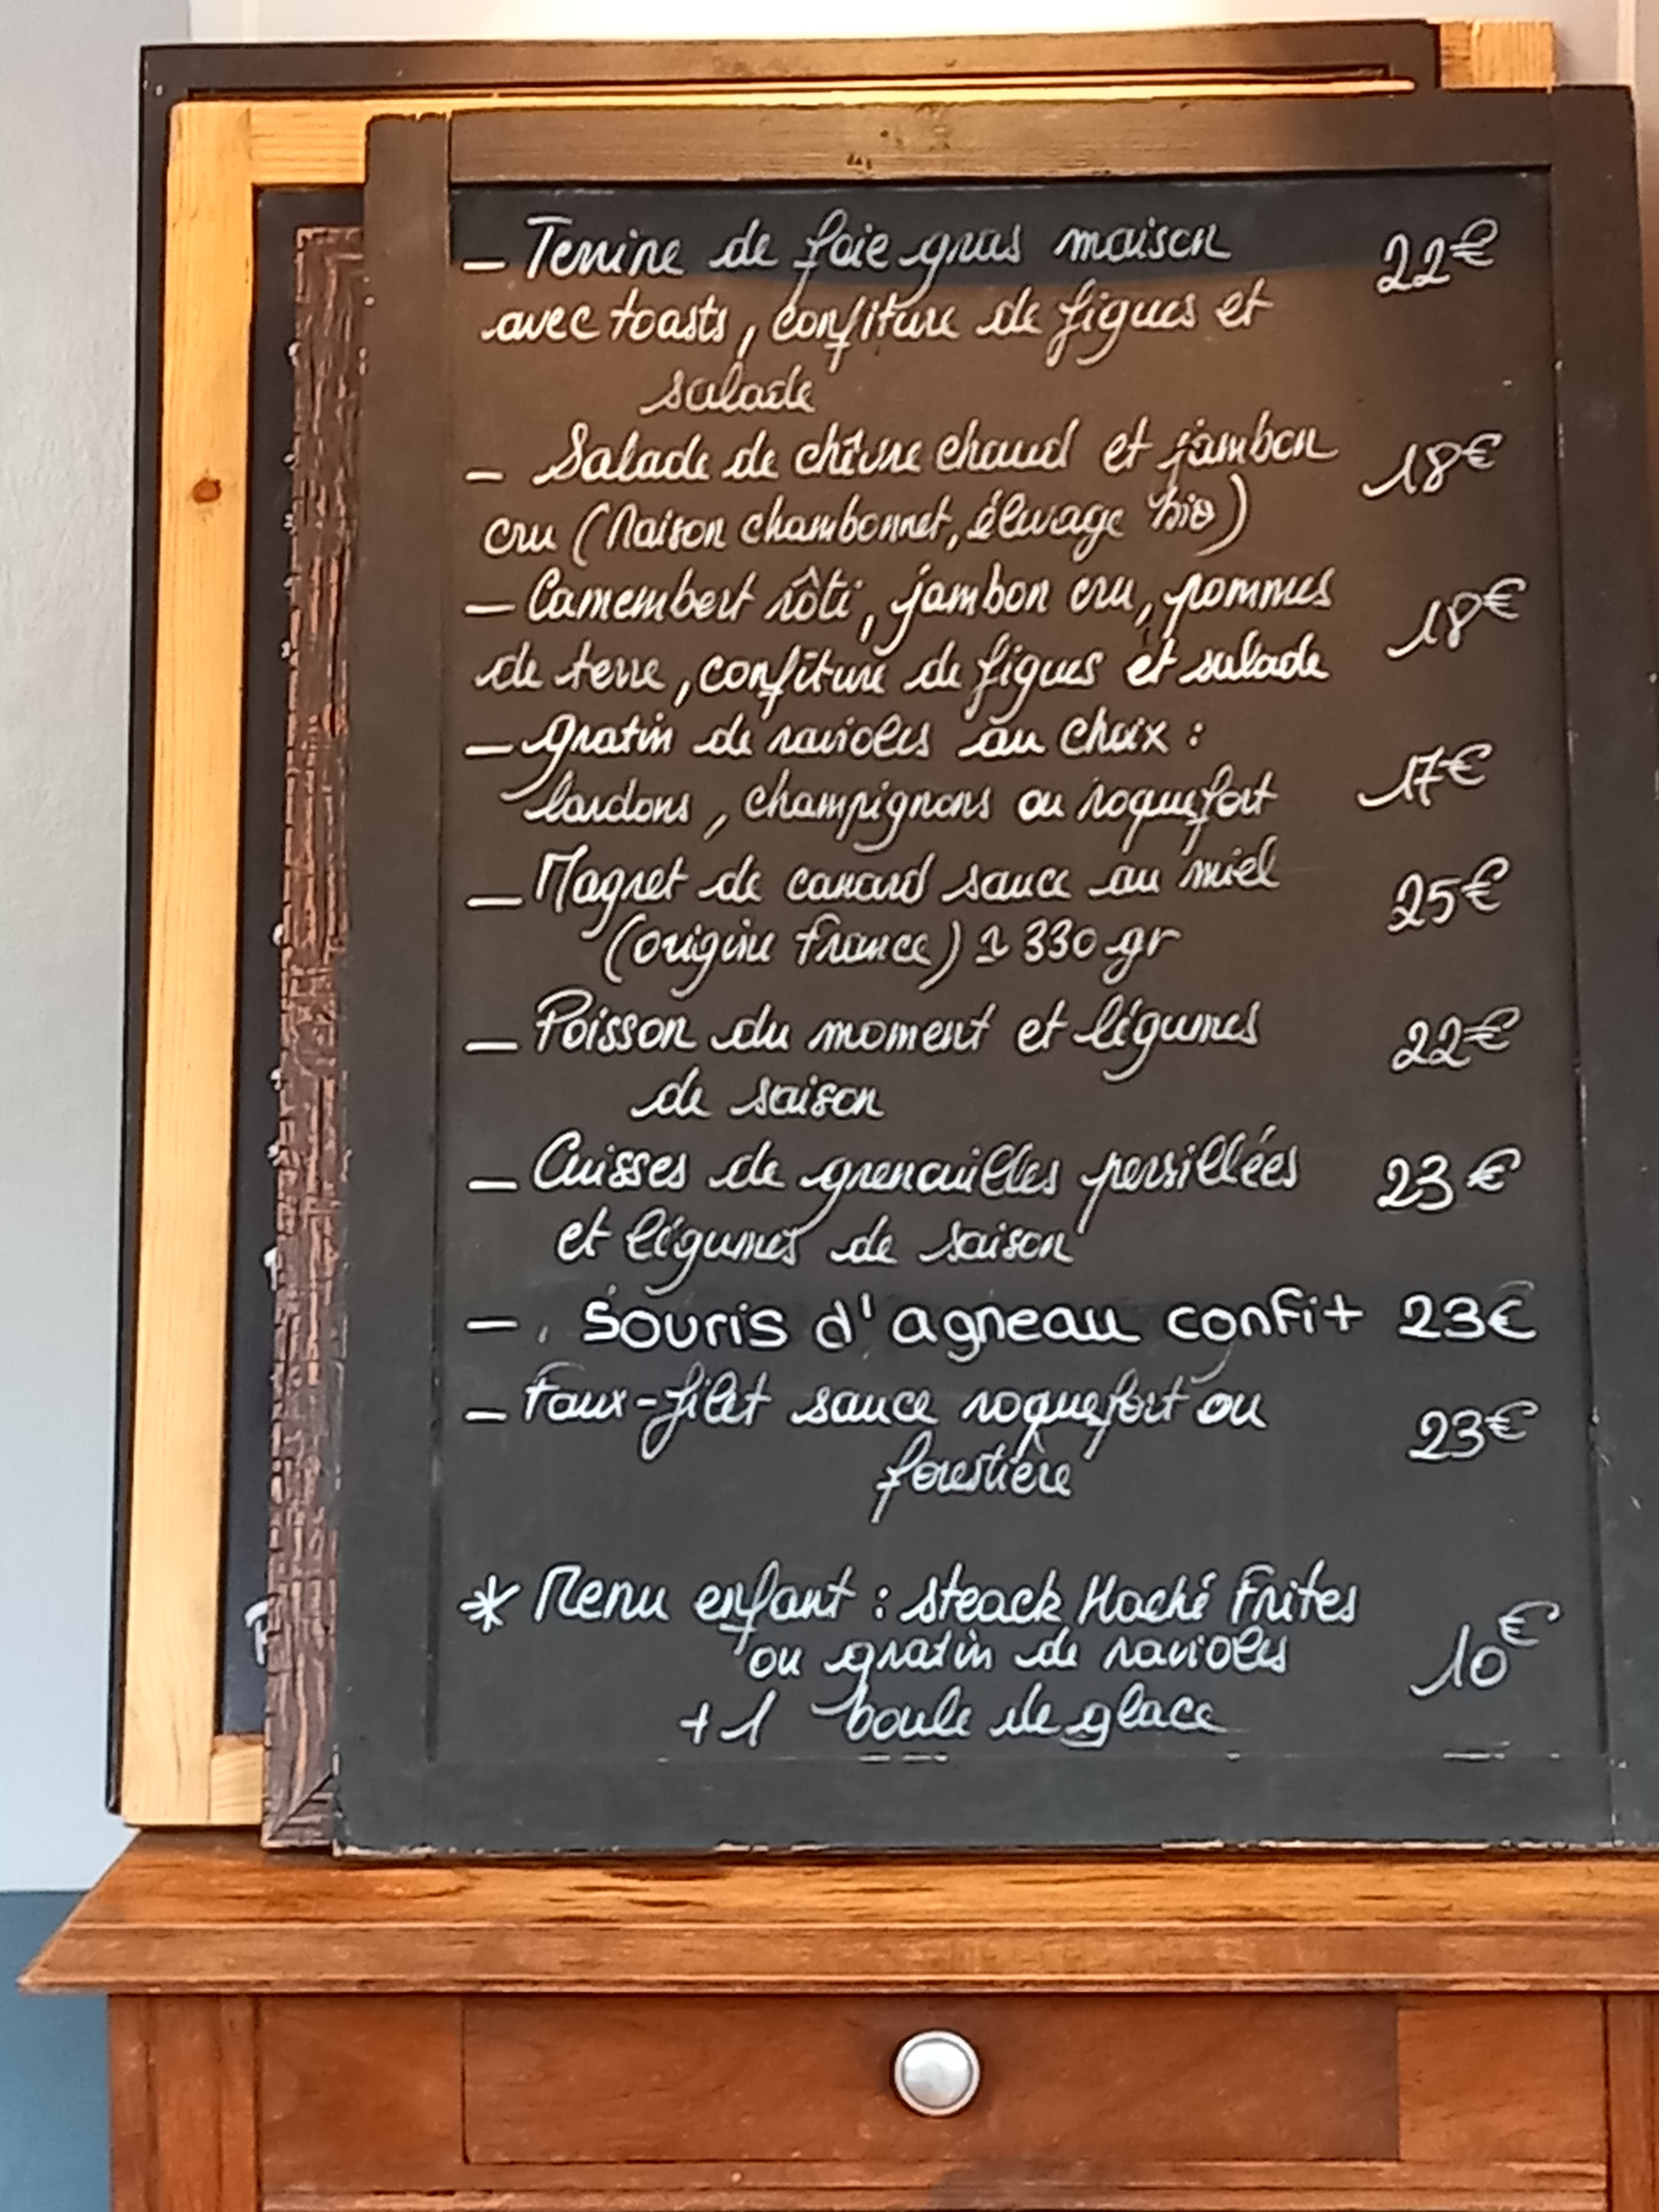 - Terrine de foie gras maison 22€
avec toasts, confiture de figues et
salade
- Salade de chèvre chaud et jambon 18€
cru (Maison chambonnet, élevage bio)
- Camembert rôti, jambon cru, pommes 18€
de terre, confiture de figues et salade
- gratin de ravioles au choix :
lardons, champignons ou roquefort 17€
- Magret de canard sauce au miel 25€
(origine France) ~ 330 gr
- Poisson du moment et légumes 22€
de saison
- Cuisses de grenouilles persillées 23€
et légumes de saison
- Souris d'agneau confit 23€
- Faux-filet sauce roquefort ou 23€
forestière
* Menu enfant : steack Haché Frites
ou gratin de ravioles 10€
+ 1 boule de glace